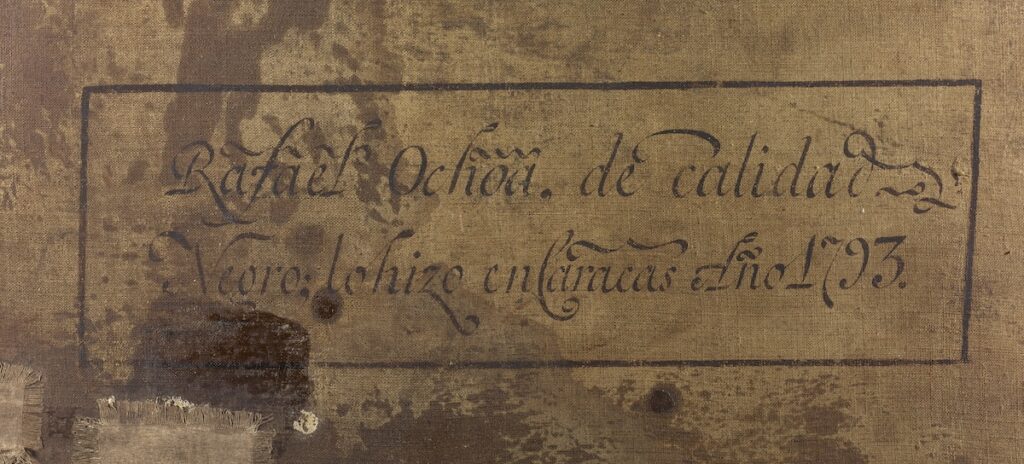 Rafael Ochoa, de calidad
Negro; lo hizo en Caracas Año 1793.